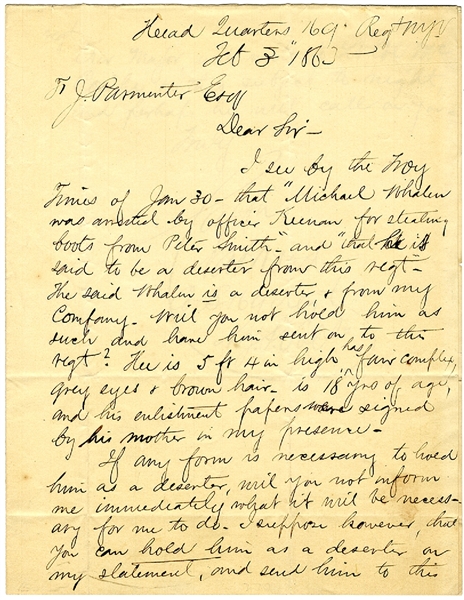 Head Quarters 169. Regt N.Y.V
Feb 3" 1863
T. J. Parmenter Esq
Dear Sir—
I see by the Troy
Times of Jan 30— that "Michael Whalen
was arrested by officer Keenan for stealing
boots from Peter Smith" and "that he is
said to be a deserter from this regt—
The said Whalen is a deserter & from my
Company. Will you not hold him as
such and have him sent on to this
regt? Hee is 5 ft 4 in high has fair complex,
grey eyes & brown hair— is 18 yrs of age,
and his enlistment papers were signed
by his mother in my presence—
If any form is necessary to hold
him as a deserter, will you not inform
me immediately what it will be necess-
ary for me to do— I suppose however, that
you can hold him as a deserter on
my statement, and send him to this